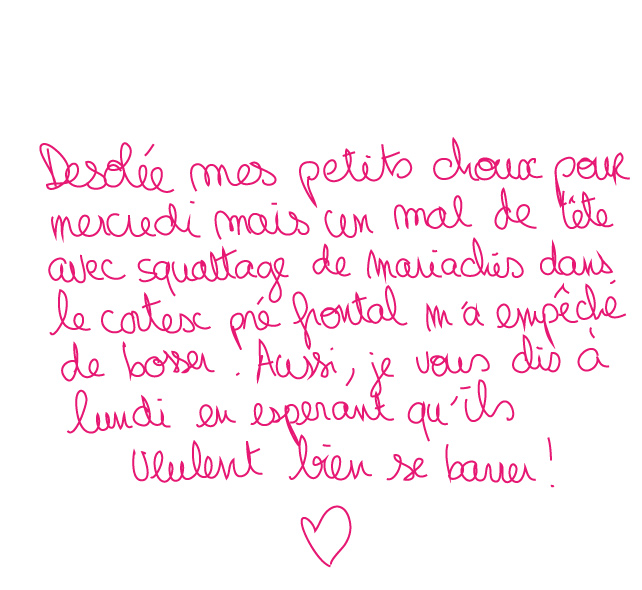 Desolée mes petits choux pour
mercredi mais un mal de tête
avec squattage de mariachis dans
le cortesc pré frontal m'a empêché
de bosser. Aussi, je vous dis à
lundi en esperant qu'ils
veulent bien se barrer!